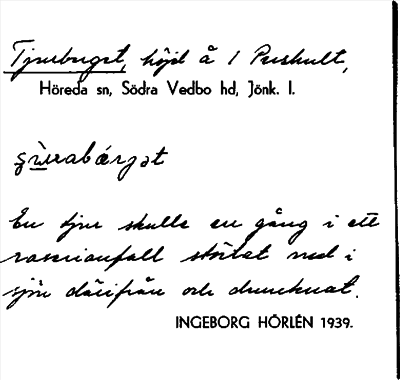 Tjurberget, höjd å 1 Pukhult,
Höreda sn, Södra Vedbo hd, Jönk. l.
En tjur skulle en gång i ett
raserianfall störtat ned i
sjön därifrån och drunknat.
INGEBORG HÖRLÉN 1939.